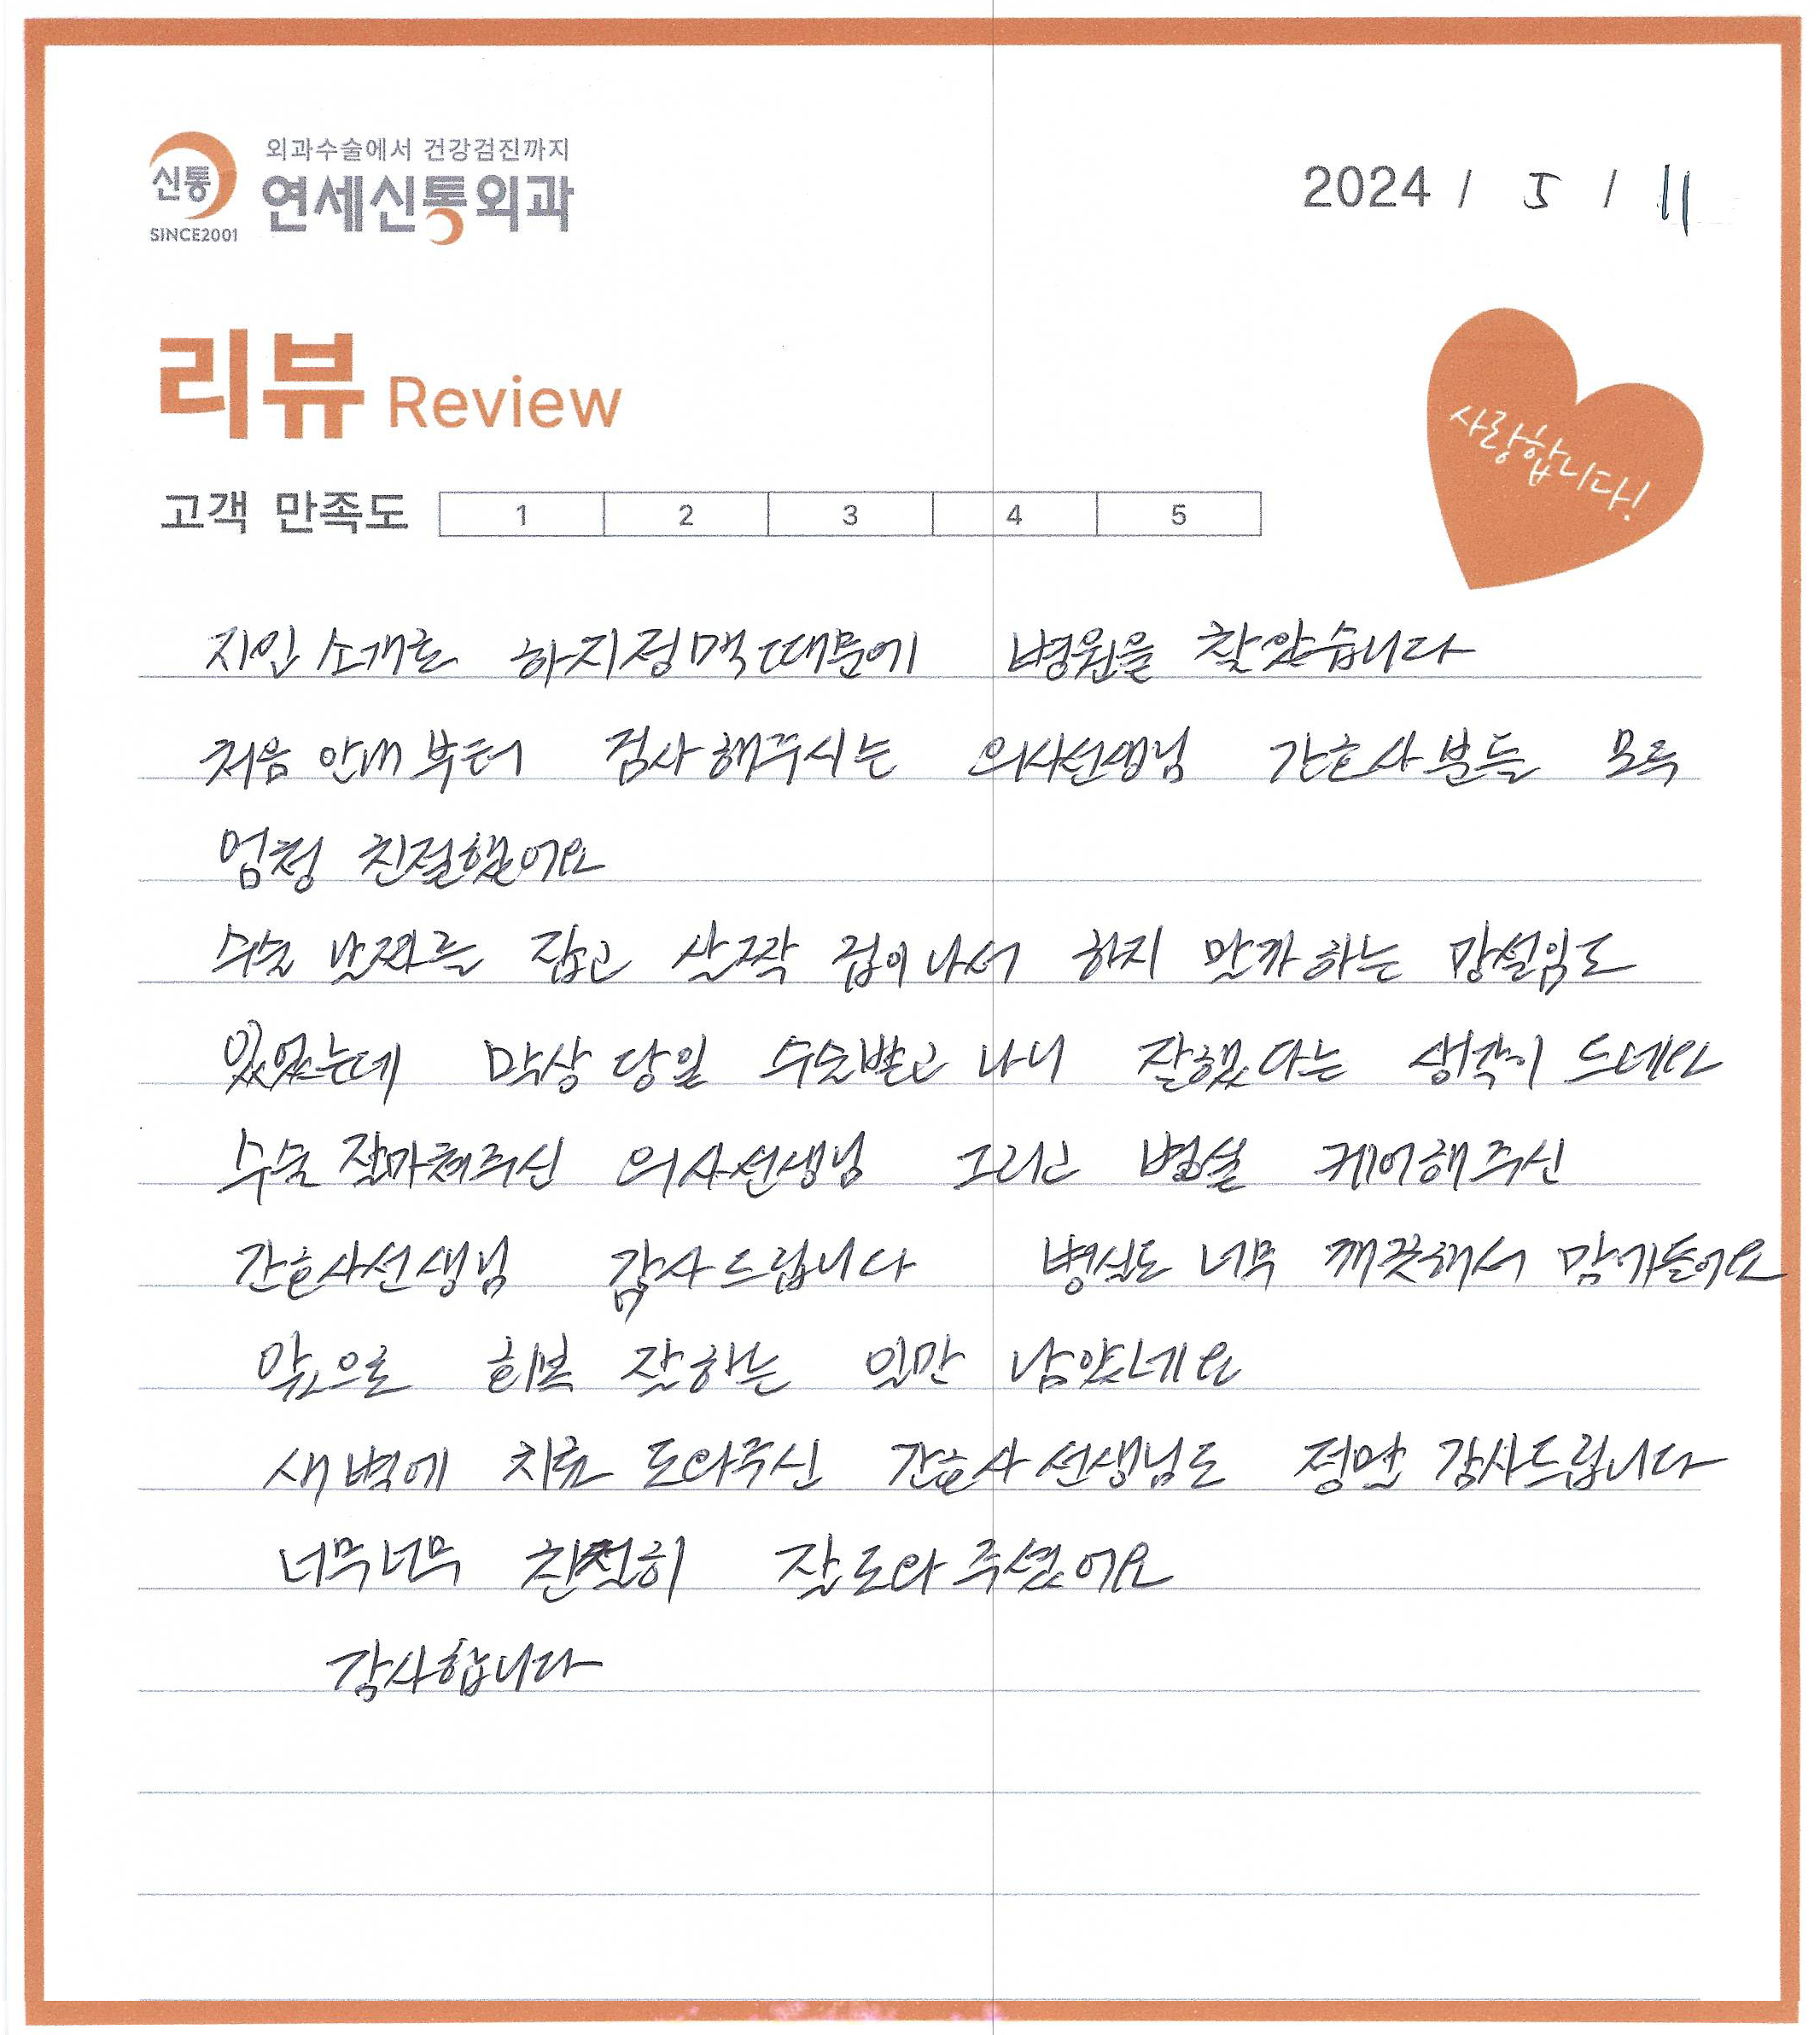 외과수술에서 건강검진까지
신통 연세신통외과
SINCE2001
2024 / 5 / 11
리뷰 Review
사랑합니다!
고객 만족도 1 2 3 4 5
지인 소개로 하지정맥때문에 병원을 찾았습니다
처음 안내부터 검사해주시는 의사선생님 간호사분들 모두
엄청 친절했어요
수술 날짜를 잡고 살짝 겁이나서 하지 말까하는 망설임도
있었는데 막상 당일 수술받고 나니 잘했다는 생각이 드네요
수술 잘마쳐주신 의사선생님 그리고 병실 케어해주신
간호사선생님 감사드립니다 병실도 너무 깨끗해서 맘에들어요
앞으로 회복 잘하는 일만 남았네요
새벽에 치료 도와주신 간호사선생님도 정말 감사드립니다
너무너무 친절히 잘도와주셨어요
감사합니다